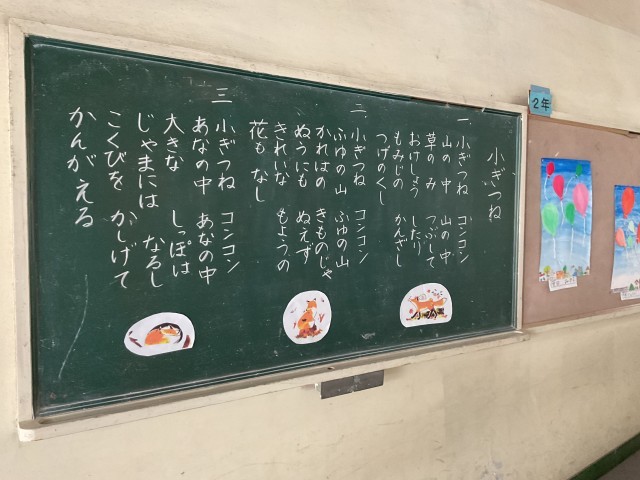 小ぎつね
一 小ぎつね コンコン
山の中 山の中
草のみ つぶして
おけしょう したり
もみじの かんざし
つげのくし
二 小ぎつね コンコン
ふゆの山 ふゆの山
かれはの きものじゃ
ぬうにも ぬえず
きれいな もようの
花もなし
三 小ぎつね コンコン
あなの中 あなの中
大きな しっぽは
じゃまには なるし
こくびを かしげて
かんがえる
2年